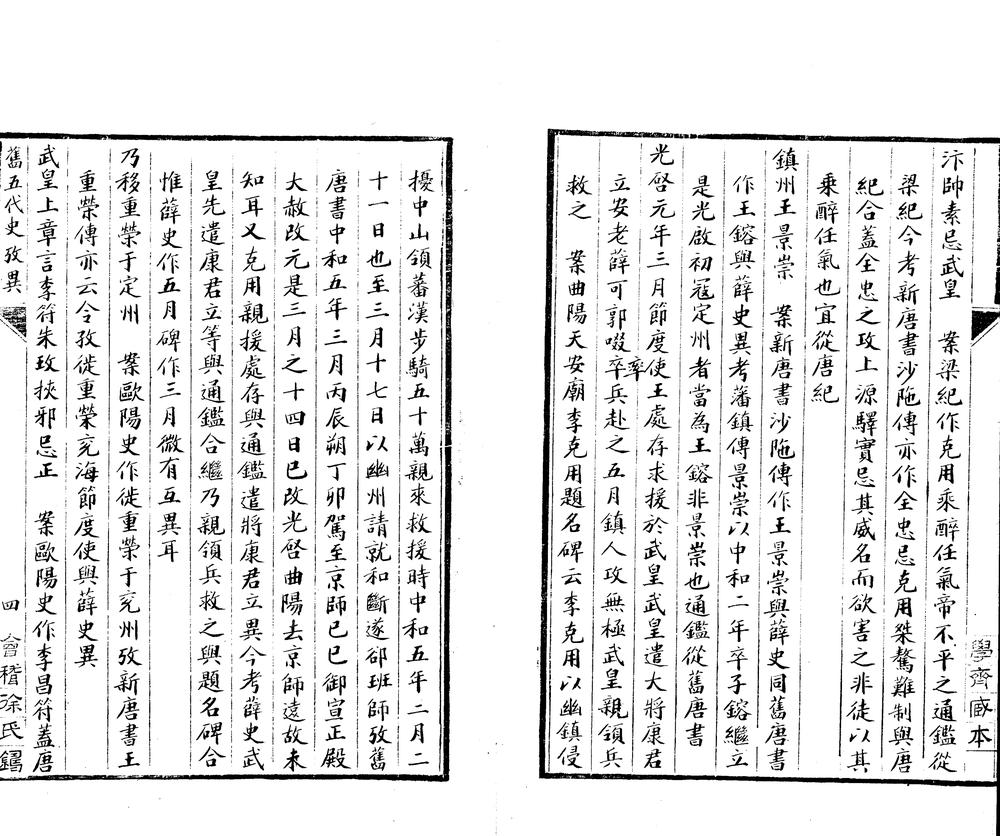 汴帥素忌武皇　案梁紀作克用乘醉任氣帝不平之通鑑從
梁紀今考新唐書沙陁傳亦作全忠忌克用桀驁難制與唐
紀合蓋全忠之攻上源驛實忌其威名而欲害之非徒以其
乘醉任氣也宜從唐紀
鎮州王景崇　案新唐書沙陁傳作王景崇與薛史同舊唐書
作王鎔與薛史異考藩鎮傳景崇以中和二年卒子鎔繼立
是光啟初寇定州者當為王鎔非景崇也通鑑從舊唐書
光啓元年三月節度使王處存求援於武皇武皇遣大將康君
立安老薛可郭啜率卒兵赴之五月鎮人攻無極武皇親領兵
救之　案曲陽天安廟李克用題名碑云李克用以幽鎮侵
學齋
本
擾中山領蕃漢步騎五十萬親來救援時中和五年二月二
十一日也至三月十七日以幽州請就和斷遂郤班師攷舊
唐書中和五年三月丙辰朔丁卯駕至京師己巳御宣正殿
大赦改元是三月之十四日已改光啓曲陽去京師遠故未
知耳又克用親援處存與通鑑遣將康君立異今考薛史武
皇先遣康君立等與通鑑合繼乃親領兵救之與題名碑合
惟薛史作五月碑作三月微有互異耳
乃移重榮于定州　案歐陽史作徙重榮于兗州攷新唐書王
重榮傳亦云令孜徙重榮兗海節度使與薛史異
武皇上章言李符朱玫挾邪忌正　案歐陽史作李昌符蓋唐
舊五代史攷異
四
會稽徐氏鑄